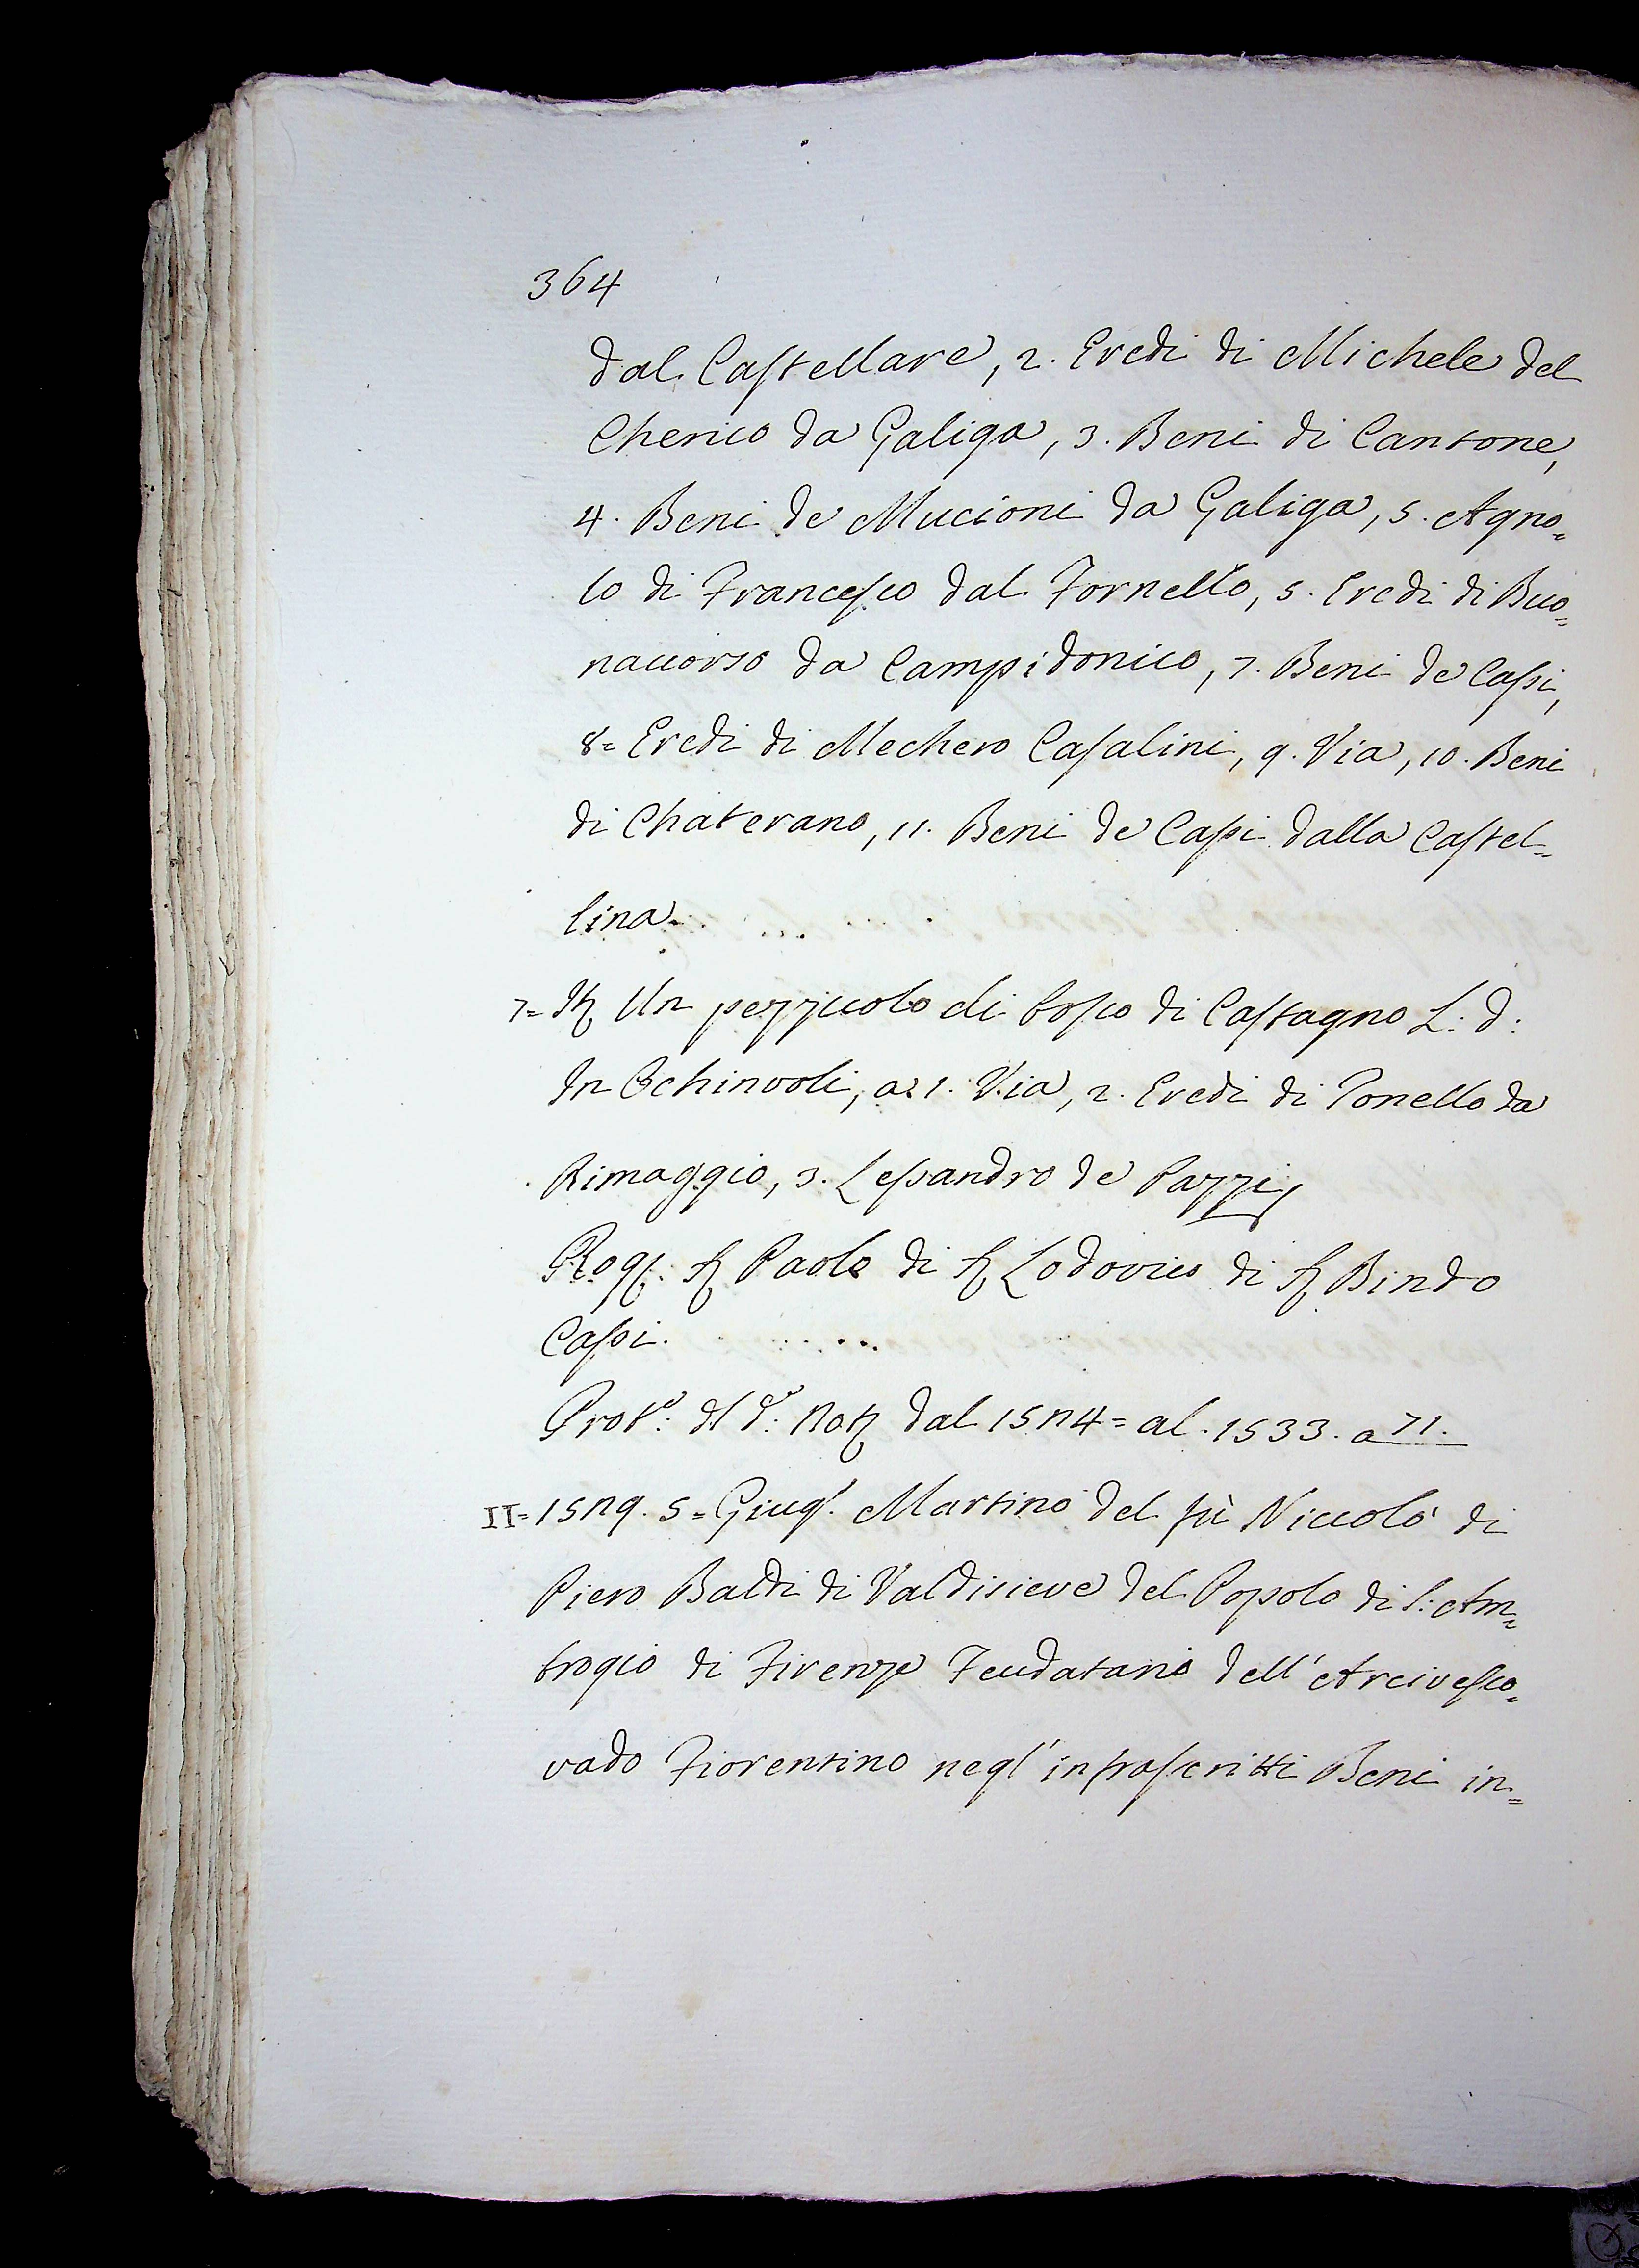 364
dal Castellare, 2. Eredi di Michele del
Cherico da Galiga, 3. Beni di Cantone,
4. Beni de Mucioni da Galiga, 5. Agno=
lo di Francesco dal Fornello, 5. Eredi di Buo=
naccorso da Campidonico, 7. Beni de Cassi,
8= Eredi di Mechero Casalini, 9. Via, 10. Beni
di Chaterano, 11. Beni de Cassi dalla Castel=
lina.
7= It Un pezzuolo di bosco di Castagno L: d:
In Ochinvoli, a: 1. Via, 2. Eredi di Tonello da
Rimaggio, 3. Lessandro de Pazzi
Rog: S Paolo di S Lodovico di S Bindo
Cassi.
Prot.o: d d.o: Not dal 1524= al. 1533. a 71.
II= 1529. 5= Giug. Martino del fù Niccolò di
Piero Baldi di Valdisieve del Popolo di S: Am=
brogio di Firenze Feudatario dell' Arcivesco=
vado Fiorentino negl' infrascritti Beni in=